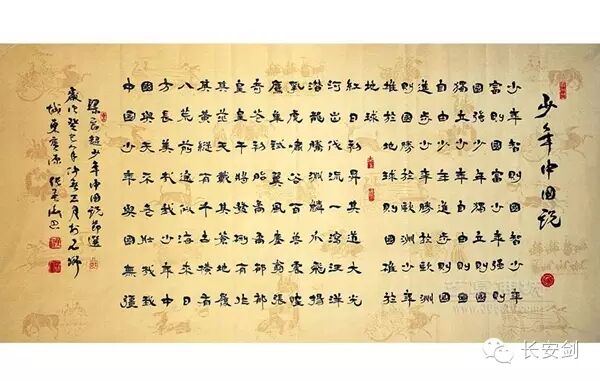 少年中国说
少年智則國智少年
富則國富少年強則
國強少年獨立則國
獨立少年自由則國
自由少年進步則國
進步少年勝於歐洲
則國勝於歐洲少年
雄於地球則國雄於
地球
紅日初升其道大光
河出伏流一瀉汪洋
潛龍騰淵鱗爪飛揚
乳虎嘯谷百獸震惶
鷹隼試翼風塵吸張
奇花初胎矞矞
皇皇干將發硎有作
其芒天戴其蒼地履
其黃縱有千古橫有
八荒前途似海來日
方長美哉我少年中
國與天不老壯哉我
中國少年與國無疆
梁啟超少年中國說節選
歲次癸巳年
长安剑